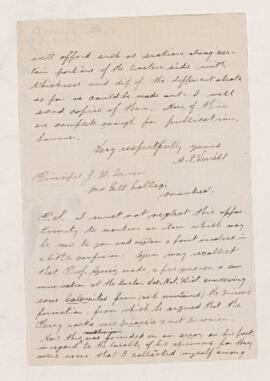 will afford such as sections along cer-
tain portions of the Eastern side, with
thickness and dip of the different strata
so far as could be made out. I will
send copies of them. None of them
are complete enough for publication,
however.
Very respectfully yours
A. E. Verrill
Principal J. W. Dawson
McGill College
Montreal
P.S. I must not neglect this oppor-
tunity to mention an item which may
be new to you and explain a point involved in
a little confusion. You may recollect
that Prof. Agassiz made, a few years ago, a com-
munication at the Boston Soc. Nat. Hist. concerning
some from
formation, from which he argued that the
rocks were Triassic not Devonian.
Now this was founded in an error on his part,
in regard to the locality of his specimens for they
were some that I collected myself among